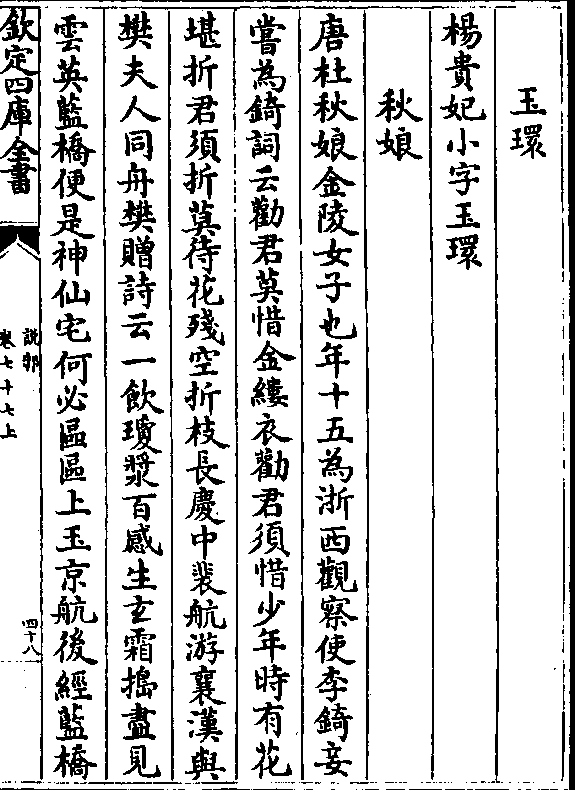 玉環
楊貴妃小字玉環
秋娘
唐杜秋娘金陵女子也年十五為浙西觀察使李錡妾
嘗為錡詞云勸君莫惜金縷衣勸君須惜少年時有花
堪折君須折莫待花殘空折枝長慶中裴航游襄漢與
樊夫人同舟樊贈詩云一飲瓊漿百感生玄霜搗盡見
雲英藍橋便是神仙宅何必區區上玉京航後經藍橋
欽定四庫全書
說郛
卷七十七上
四十八